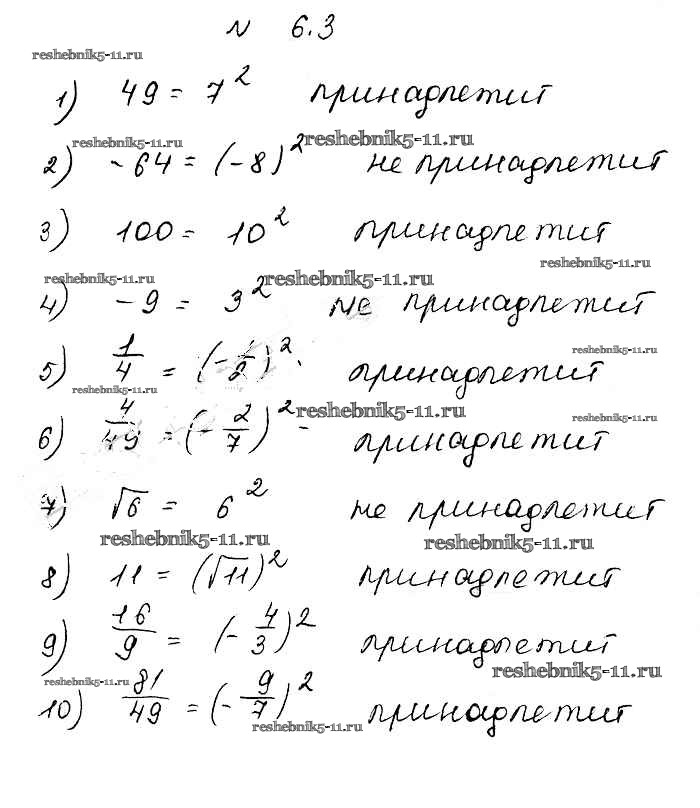 N 6.3
reshebnik5-11.ru
1) 49 = 7² принадлежит
reshebnik5-11.ru reshebnik5-11.ru
2) -64 = (-8)² не принадлежит
3) 100 = 10² принадлежит
reshebnik5-11.ru
reshebnik5-11.ru reshebnik5-11.ru
4) -9 = 3² не принадлежит
5) 1/4 = (-1/2)². принадлежит
reshebnik5-11.ru
reshebnik5-11.ru
6) 4/49 = (-2/7)² - принадлежит
reshebnik5-11.ru
reshebnik5-11.ru
7) √6 = 6² не принадлежит
reshebnik5-11.ru reshebnik5-11.ru
8) 11 = (√11)² принадлежит
9) 16/9 = (-4/3)² принадлежит
reshebnik5-11.ru
reshebnik5-11.ru
10) 81/49 = (-9/7)² принадлежит
reshebnik5-11.ru